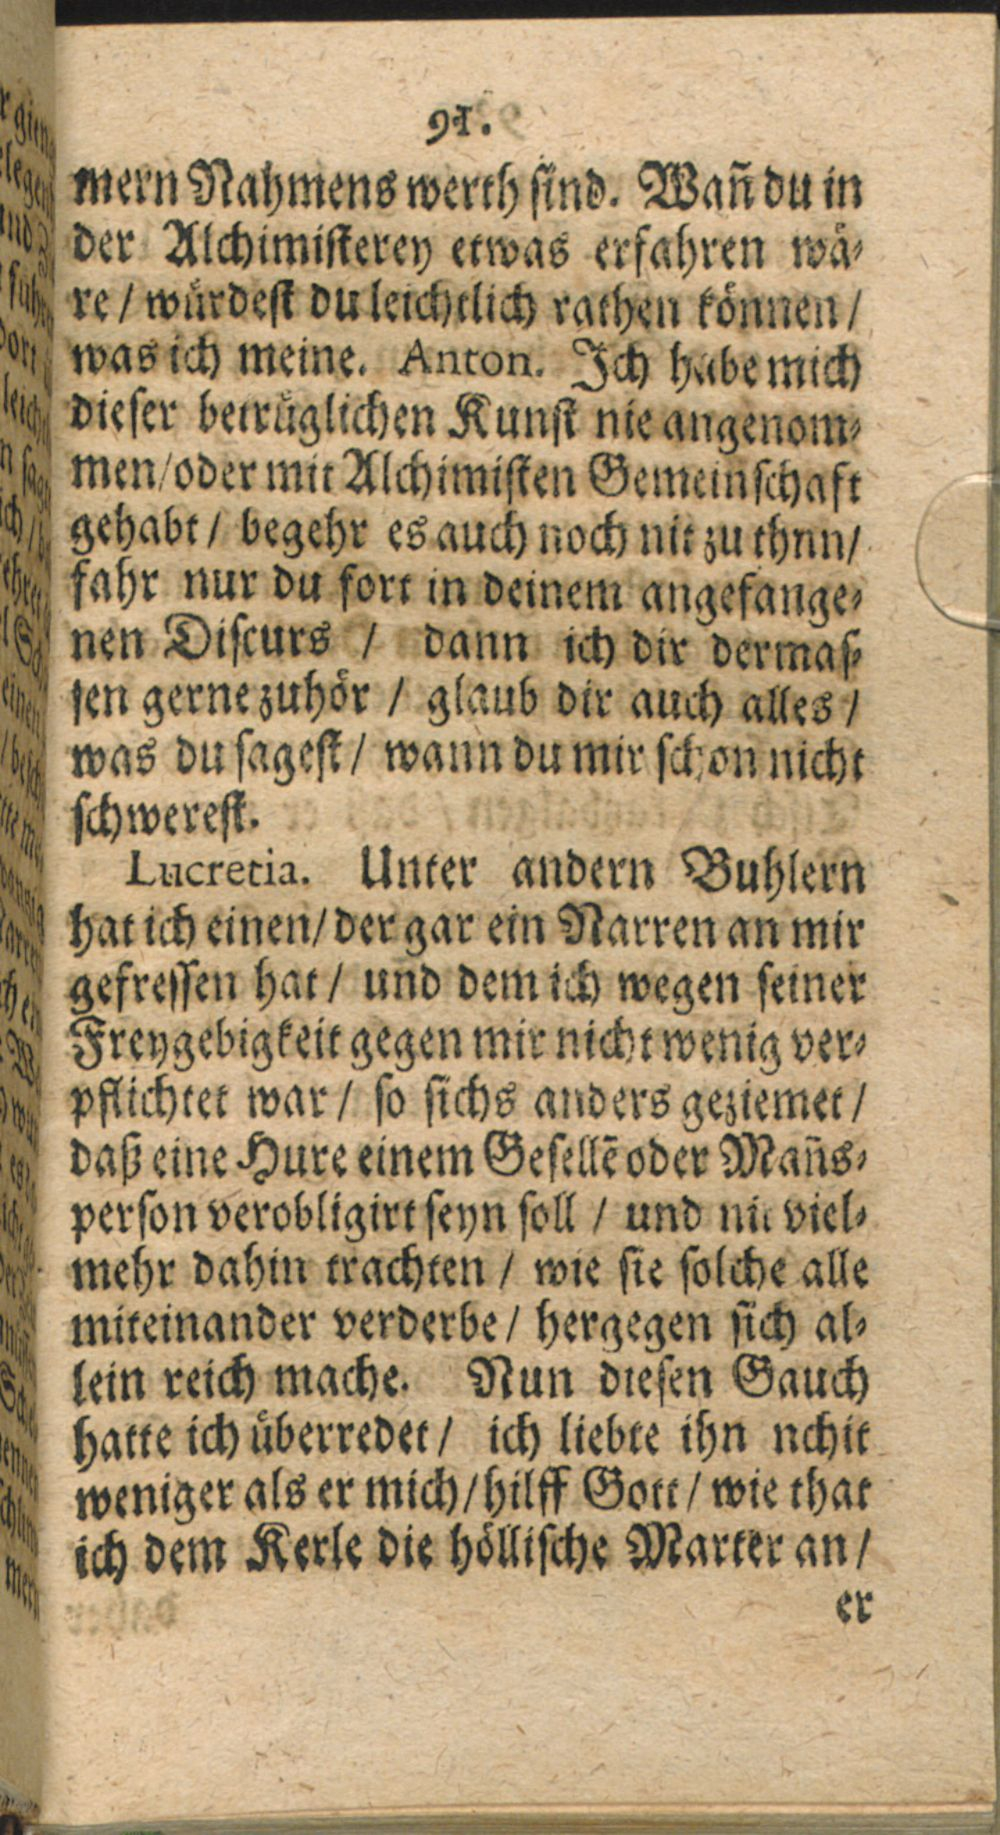 91.
mern Nahmens werth sind. Wañ du in
der Alchimisterey etwas erfahren wä-
re / würdest du leichtlich rathen können /
was ich meine. Anton. Ich habe mich
dieser betrüglichen Kunst nie angenom-
men/oder mit Alchimisten Gemeinschaft
gehabt / begehr es auch noch nit zu thnn/
fahr nur du fort in deinem angefange-
nen Discurs / dann ich dir dermas-
sen gerne zuhör / glaub dir auch alles /
was du sagest / wann du mir schon nicht
schwerest.
Lucretia. Unter andern Buhlern
hat ich einen/der gar ein Narren an mir
gefressen hat / und dem ich wegen seiner
Freygebigkeit gegen mir nicht wenig ver-
pflichtet war / so sichs anders geziemet /
daß eine Hure einem Gesellē oder Mañs-
person verobligirt seyn soll / und nit viel-
mehr dahin trachten / wie sie solche alle
miteinander verderbe / hergegen sich al-
lein reich mache. Nun diesen Gauch
hatte ich überredet / ich liebte ihn nchit
weniger als er mich/hilff Gott / wie that
ich dem Kerle die höllische Marter an /
er